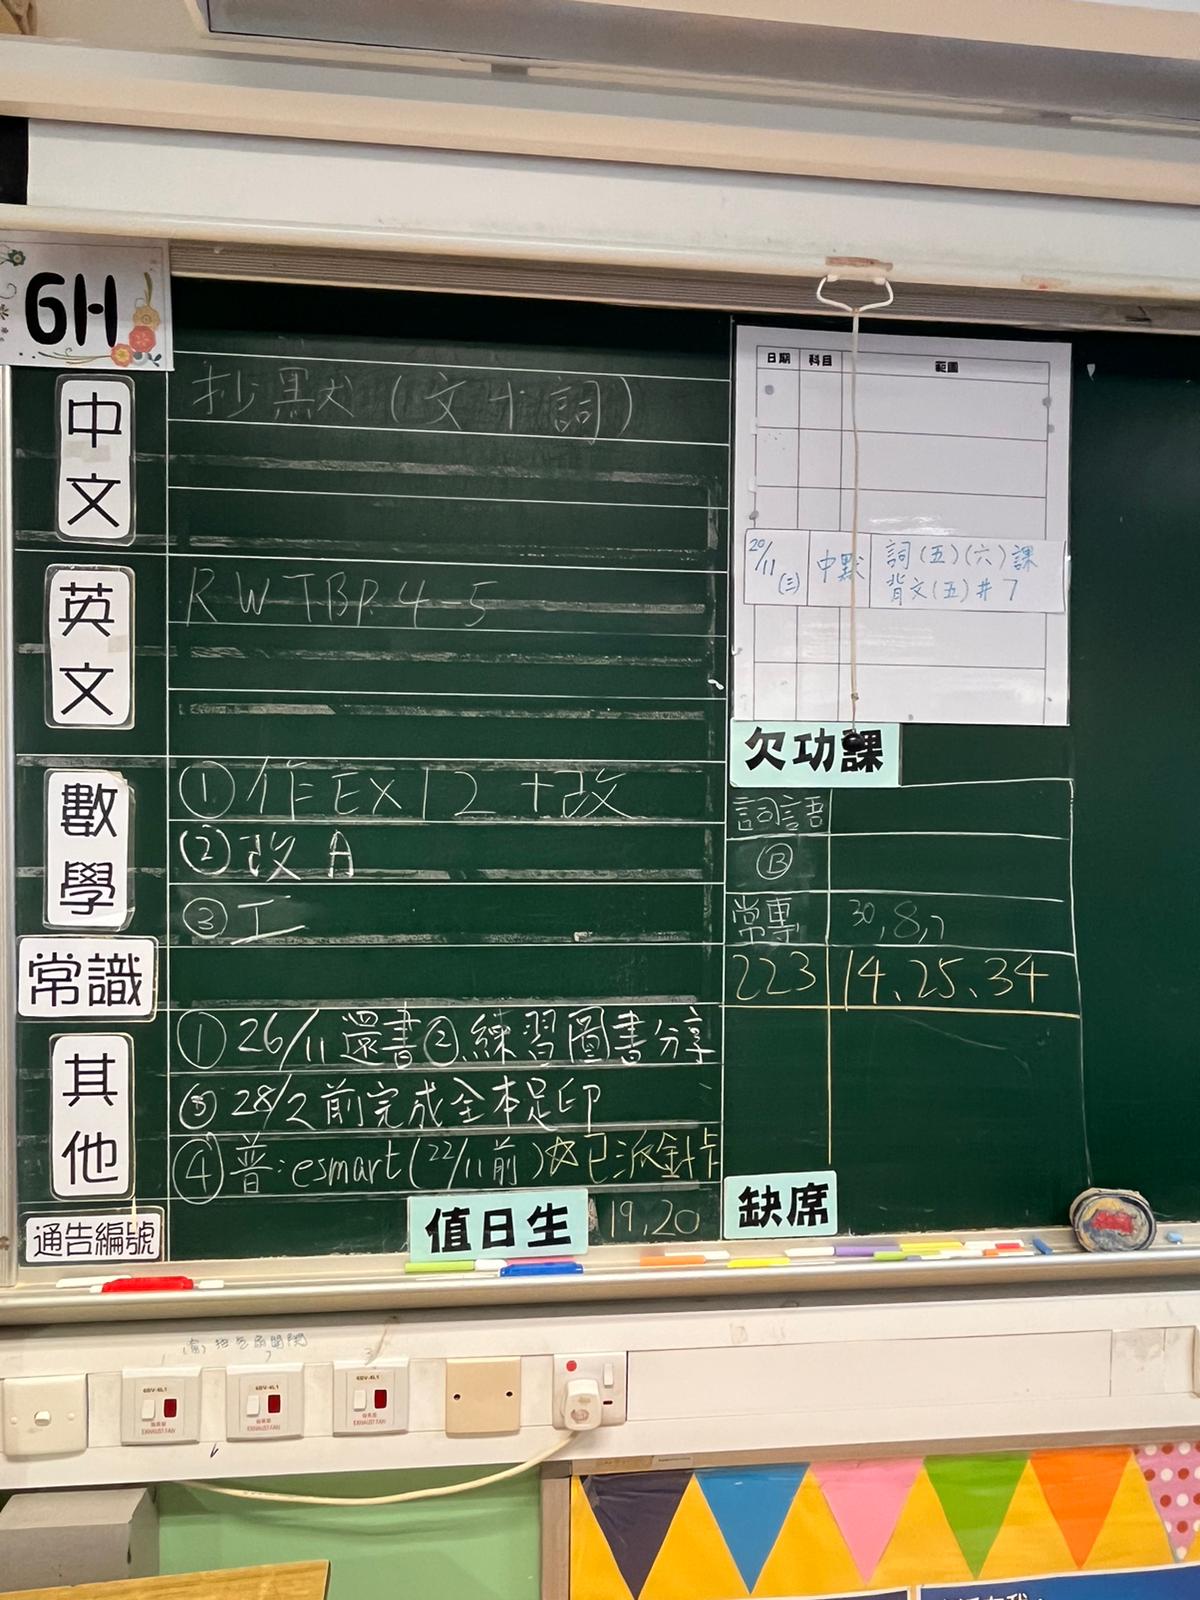 6H
中文
抄默(文+詞)
英文
RWTBP.4-5
數學
①作EX12+改
②改A
③工
常識
其他
①26/11還書②練習圖書分享
③28/2前完成全本足印
④普:esmart(22/11前)☆已派針卡
通告編號
值日生
19,20
日期 科目 範圍
20/11(三) 中默 詞(五)(六)課
背文(五)#7
欠功課
詞語
Ⓑ
常專 30,8,7
223 14、25、34
缺席
EXHAUST FAN
EXHAUST FAN
EXHAUST FAN